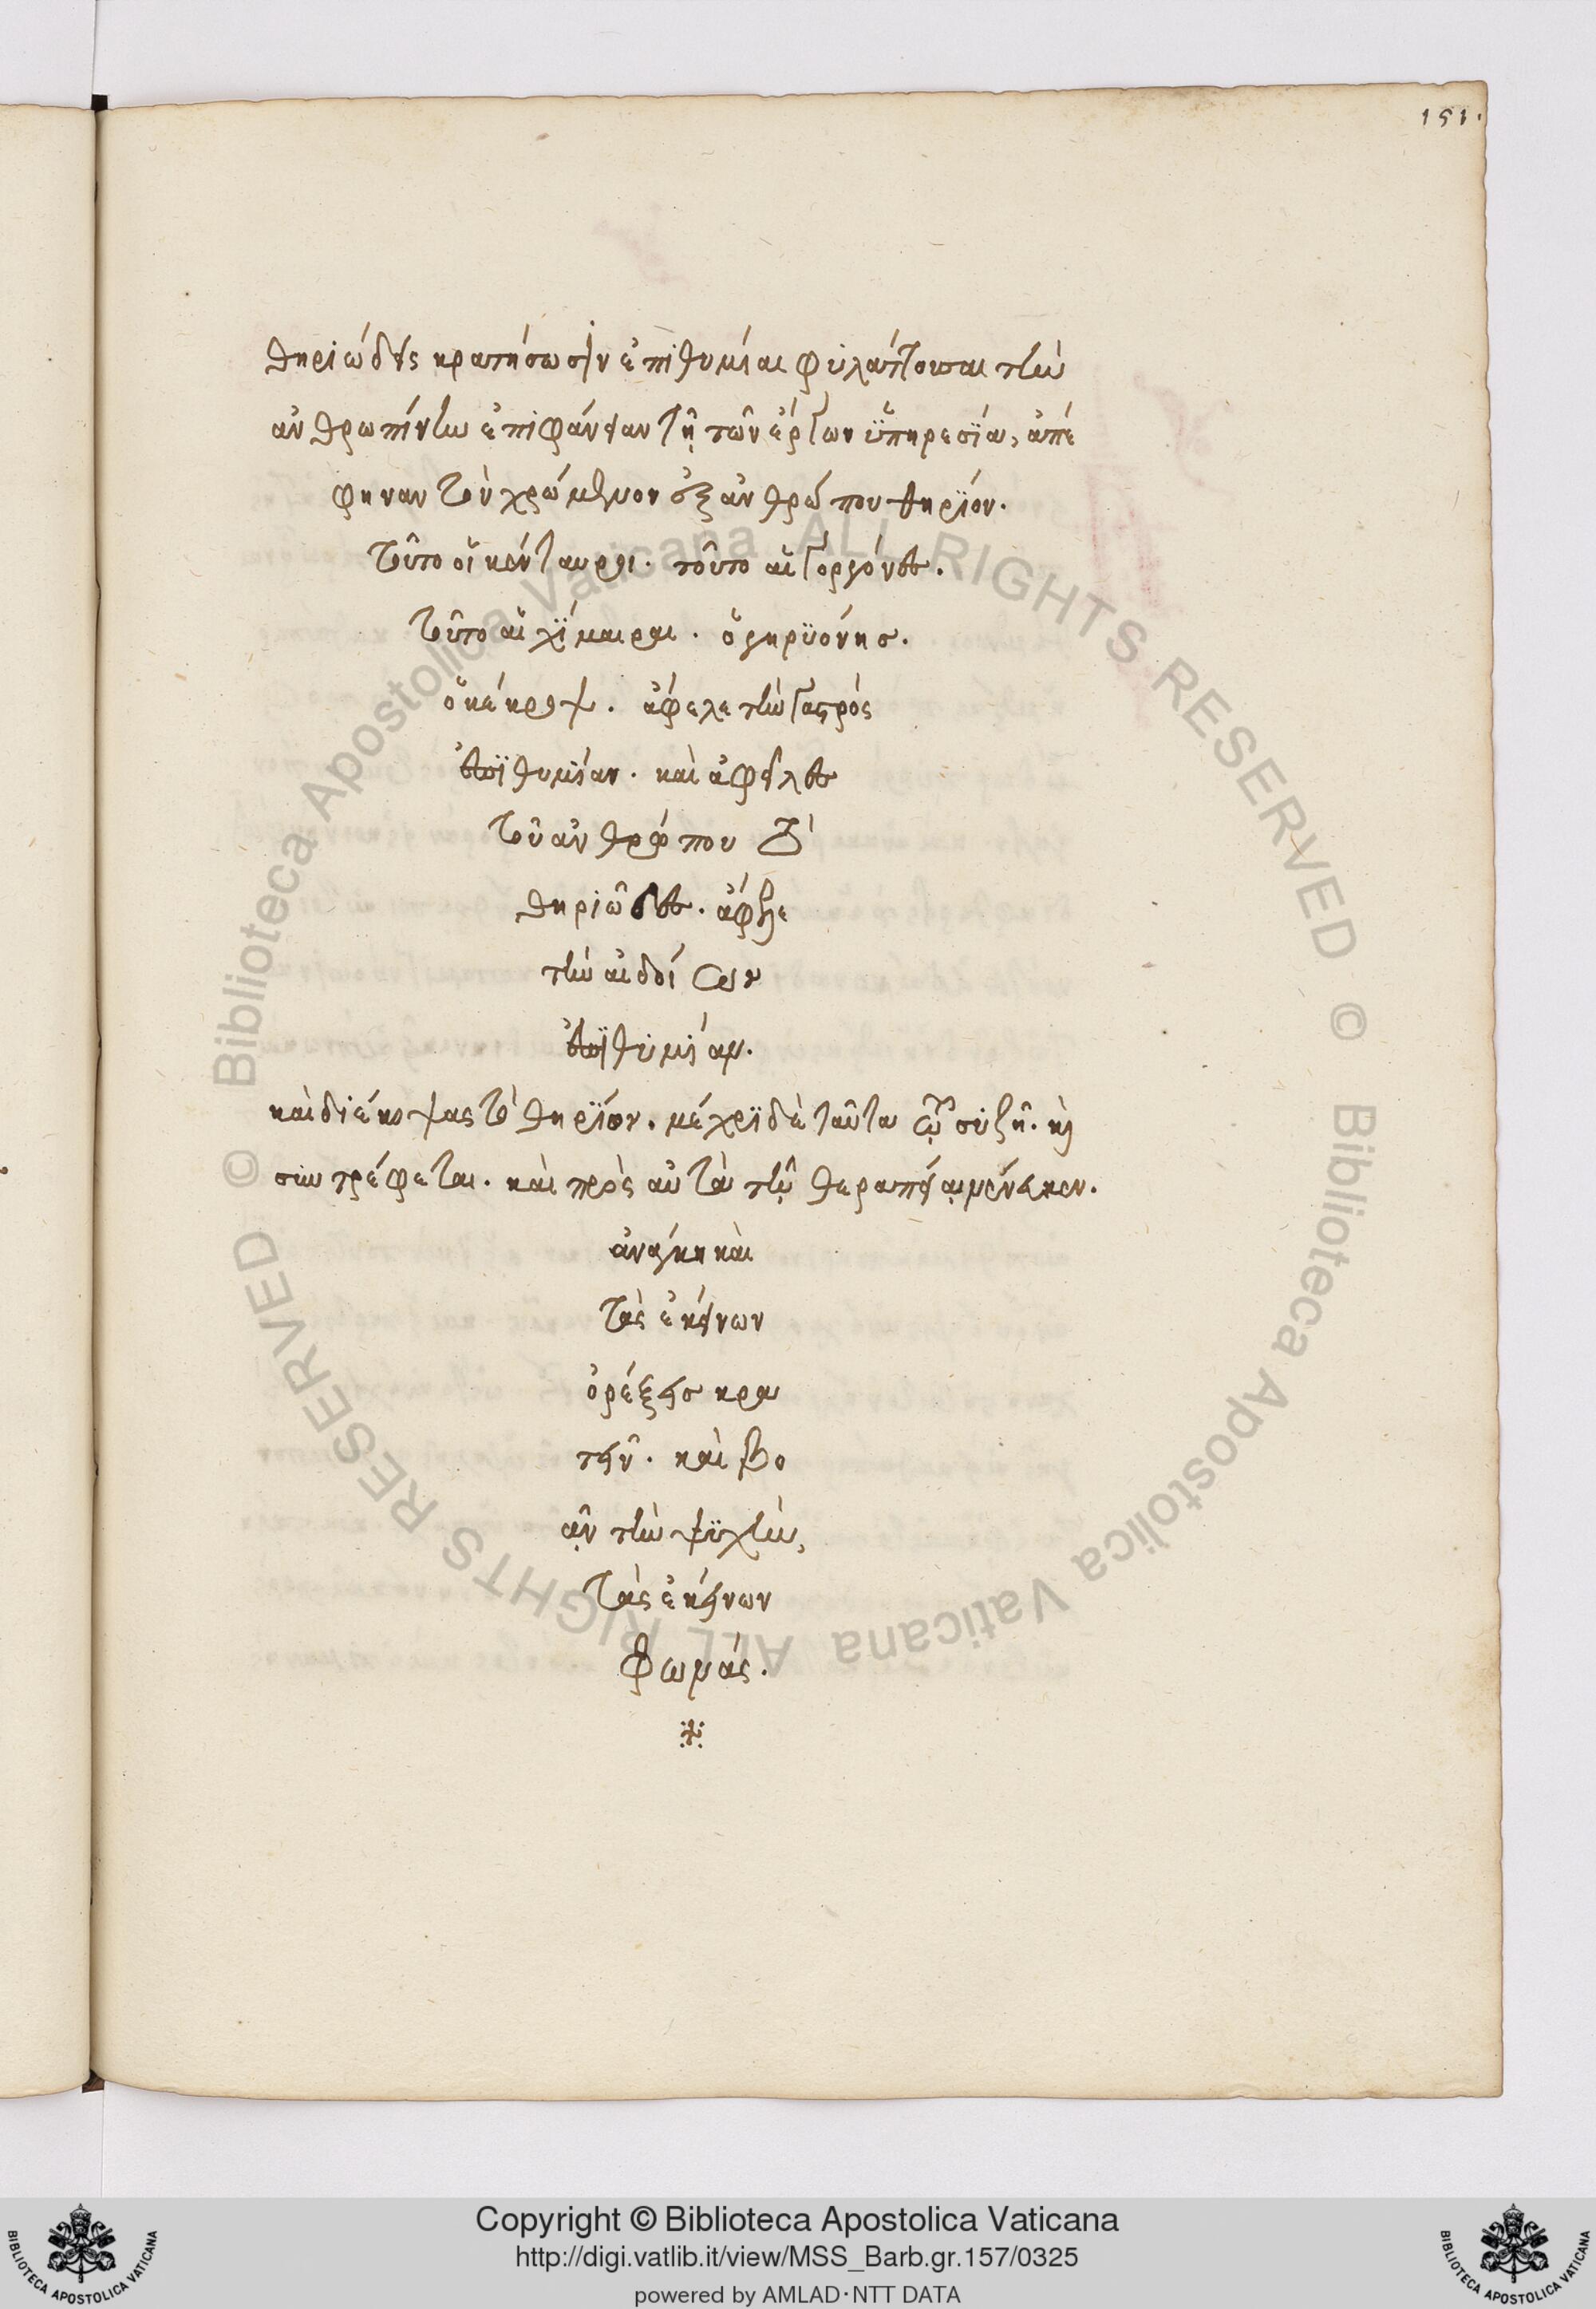 151.
θηριώδεις κρατήσωσιν ἐπιθυμίαι φυλάττουσαι τὴν
ἀνθρωπίνην ἐπιφάνειαν τῇ τῶν ἔργων ὑπηρεσία, ἀπέ
φηναν τὸν χρώμενον ἐξ ἀνθρώπου θηρίον.
τοῦτο οἱ κένταυροι. τοῦτο αἱ γοργόνες.
τοῦτο αἱ χίμαιραι. ὁ γηρυόνης.
ὁ κέκροψ. ἄφελε τὴν γαστρὸς
ἐπιθυμίαν. καὶ ἀφεῖλες
τοῦ ἀνθρώπου τὸ
θηριῶδες. ἄφελε
τὴν αἰδοίων
ἐπιθυμίαν.
καὶ διέκοψας τὸ θηρίον. μέχρι δὲ ταῦτα αὐτῷ συζῇ. καὶ
συντρέφεται. καὶ πρὸς αὐτὰ τῇ θεραπείᾳ μένει κεν.
ἀνάγκη καὶ
τὰς ἐκείνων
ὀρέξεις κρα
τεῖν. καὶ βο
ᾷν τὴν ψυχὴν,
τὰς ἐκείνων
φωνάς.
Copyright © Biblioteca Apostolica Vaticana
http://digi.vatlib.it/view/MSS_Barb.gr.157/0325
powered by AMLAD·NTT DATA
BIBLIOTECA APOSTOLICA VATICANA
BIBLIOTECA APOSTOLICA VATICANA
© Biblioteca Apostolica Vaticana ALL RIGHTS RESERVED
© Biblioteca Apostolica Vaticana ALL RIGHTS RESERVED